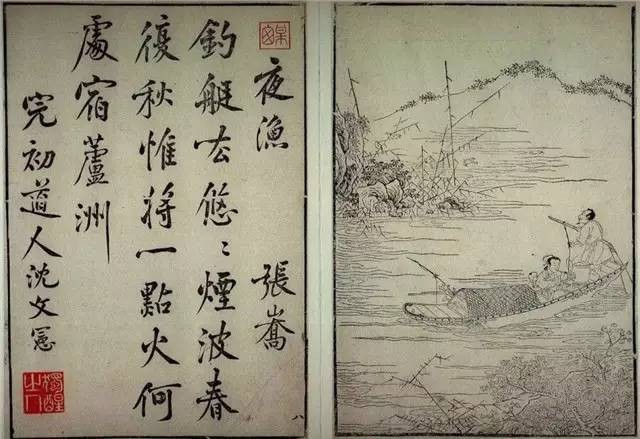 夜漁 張喬
釣艇厺悠〻煙波春
復秋惟將一點火何
處宿蘆洲
完初道人沈文憲
獨醒之人
八